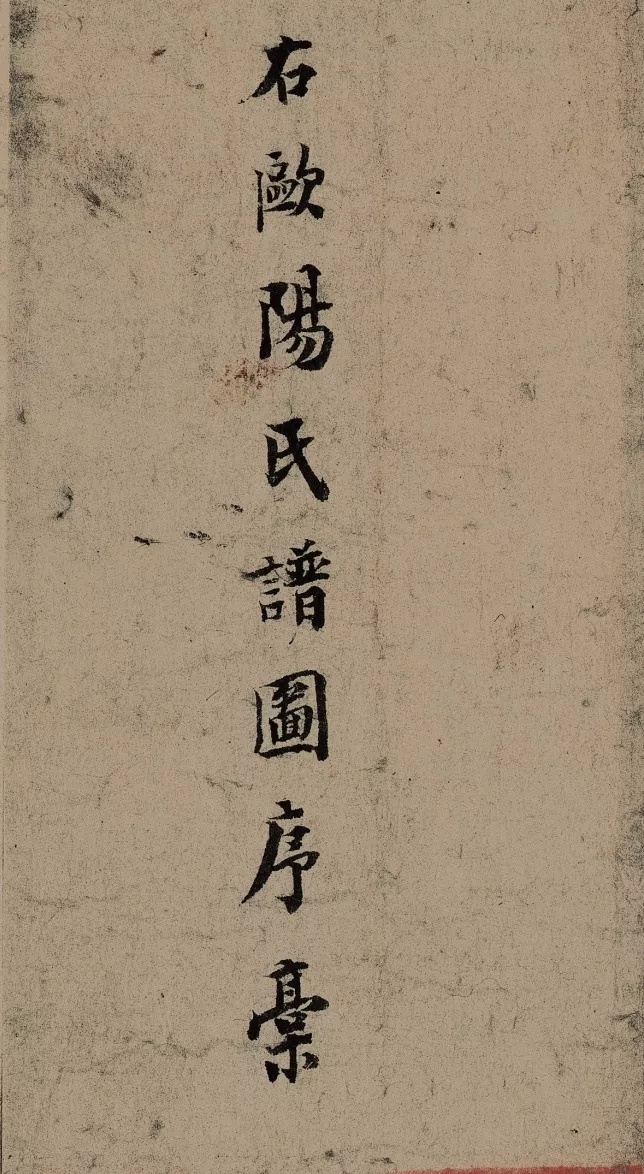 右歐陽氏譜圖序稾